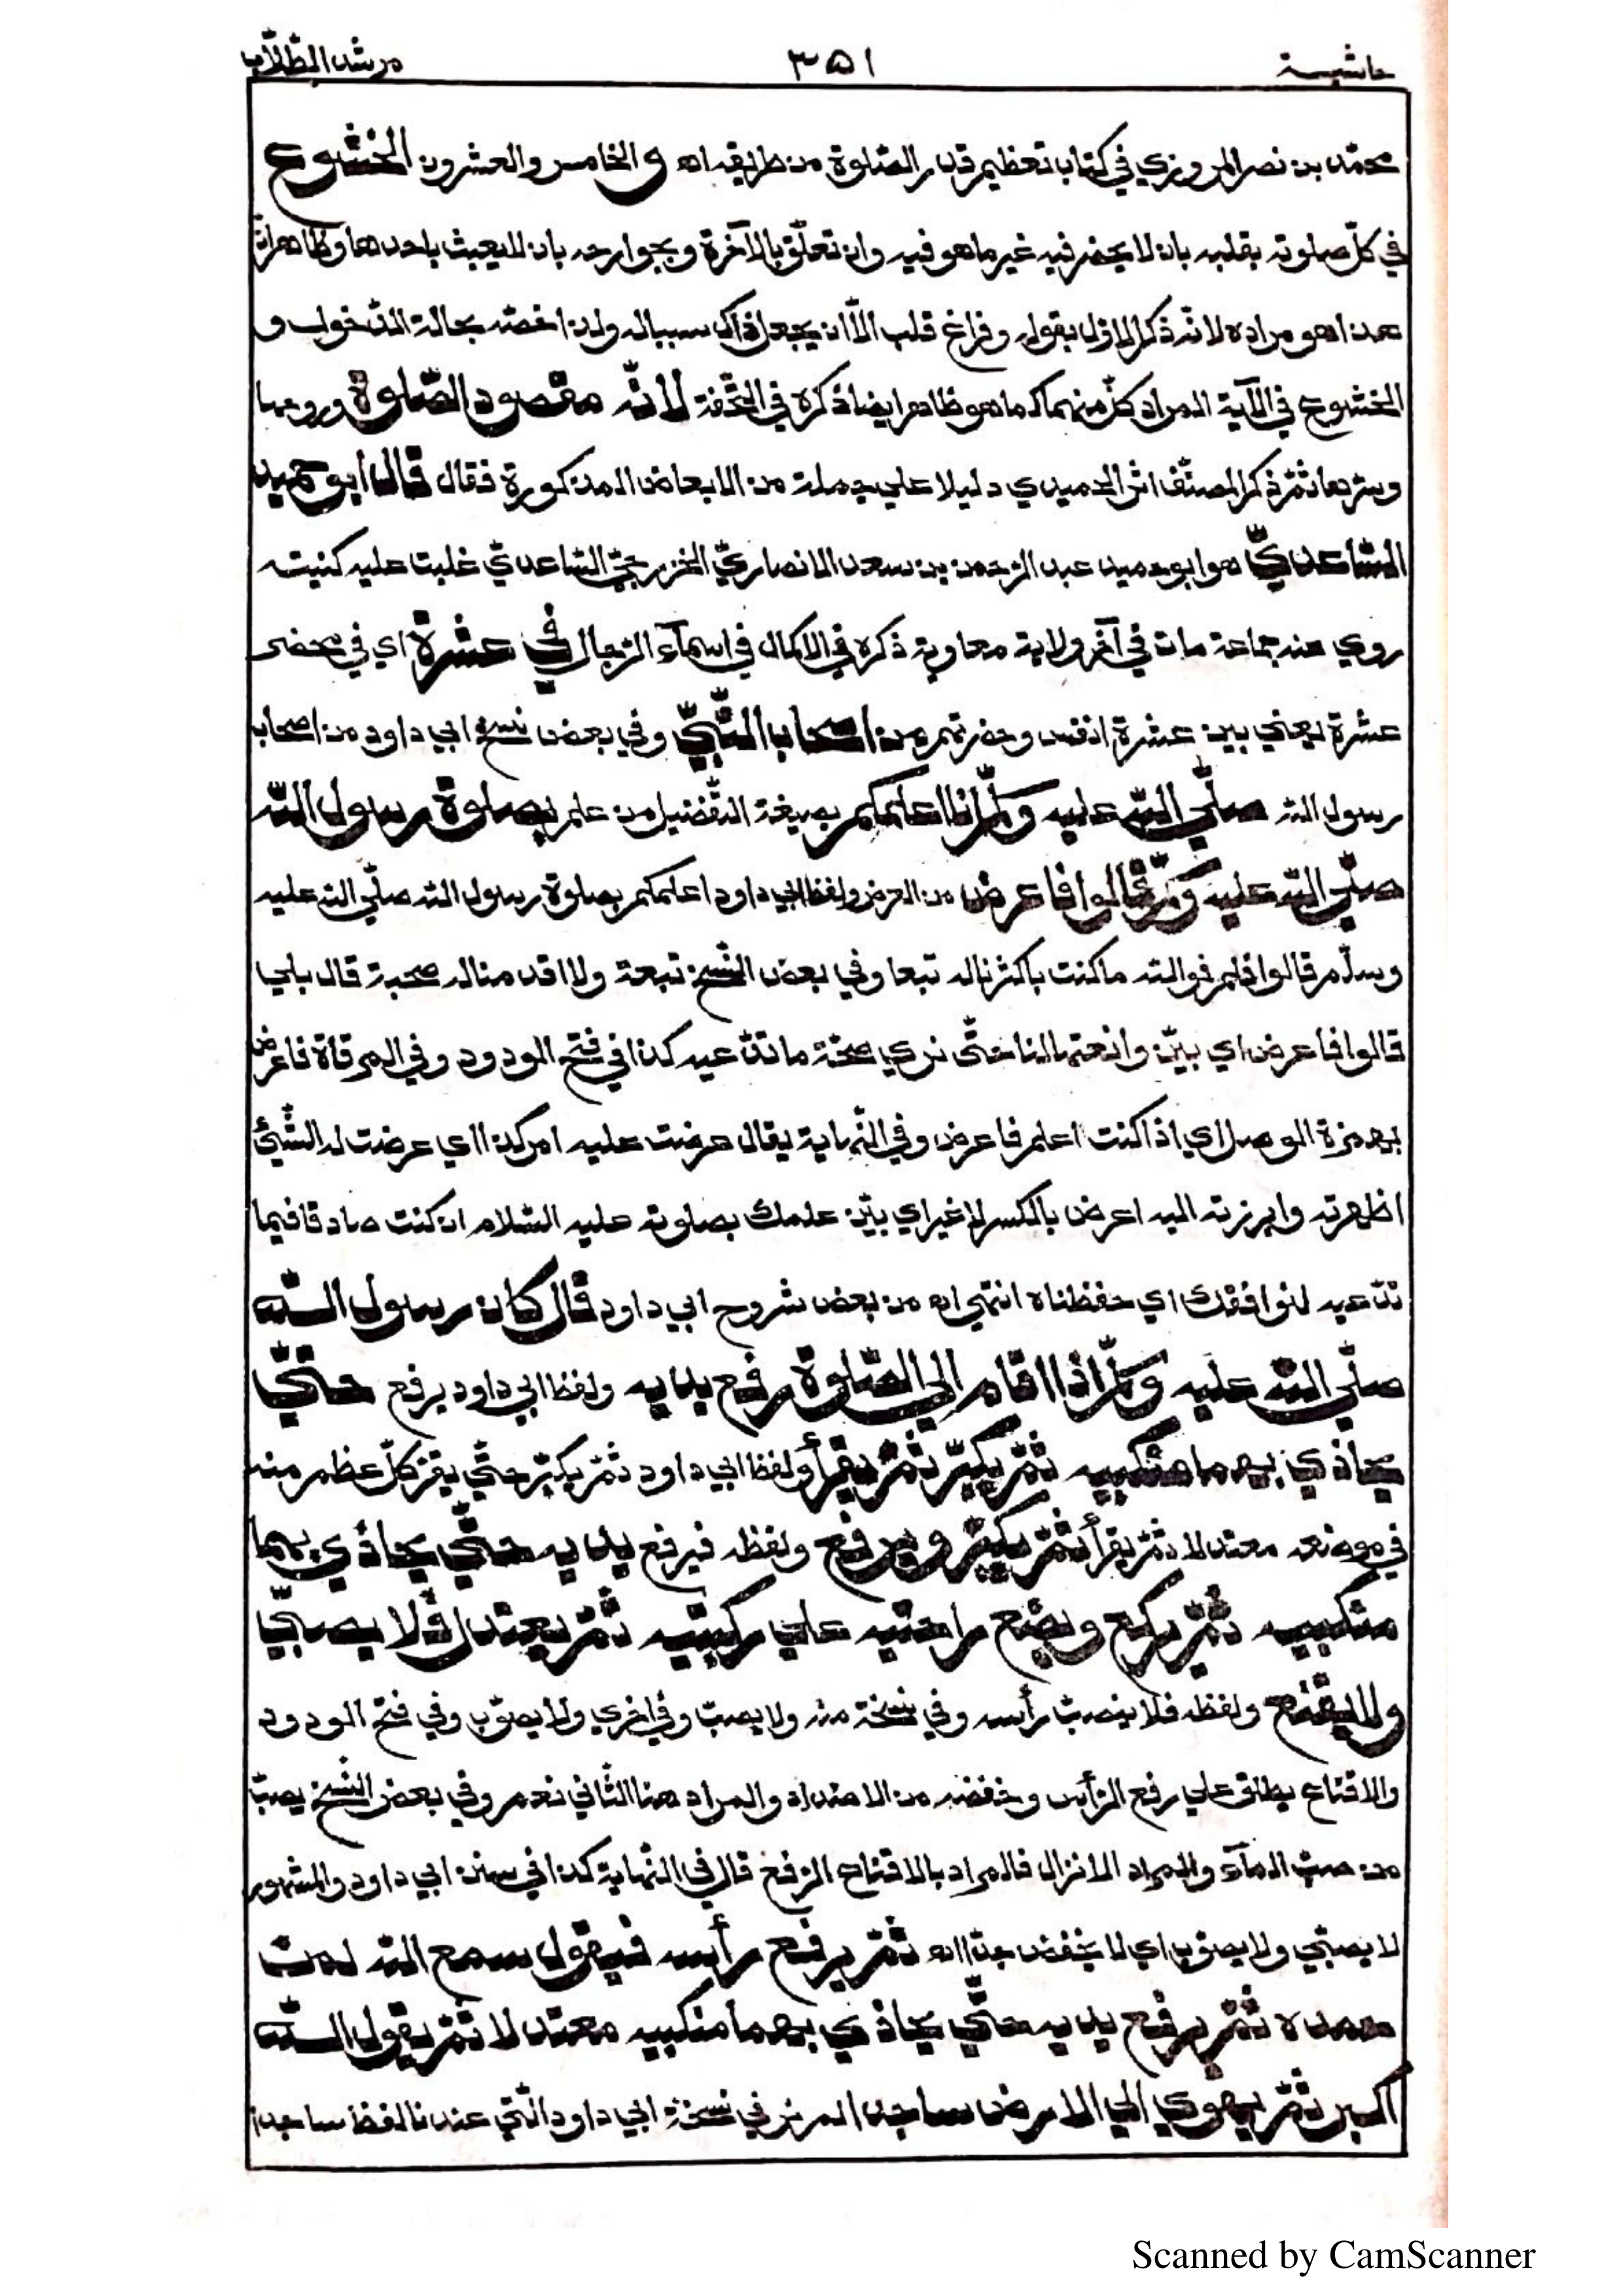 حاشية ٣٥١ مرشد الطّلّاب
محمّد بن نصر المروزي في كتاب تعظيم قدر الصّلوة من طريقه اه و الخامس والعشرون الخشوع
في كلّ صلوته بقلبه بان لا يحضر فيه غير ما هو فيه وان تعلّق بالآخرة وبجوارحه بان لا يعبث باحدها وظاهر انّ
هذا هو مراده لانّه ذكر الاوّل بقوله وفراغ قلب الّا ان يجعل ذاك سببا له ولذا خصّه بحالة الدّخول و
الخشوع في الآية المراد كلّ منهما كما هو ظاهر ايضا ذكره في التّحفة لأنّه مقصود الصّلوة وروحها
وسرّها ثمّ ذكر المصنّف اثر الحميدي دليلا علي جملة من الابعاض المذكورة فقال قال أبو حميد
السّاعديّ هو ابو حميد عبد الرّحمن بن سعد الانصاريّ الخزرجيّ السّاعديّ غلبت عليه كنيته
روي عنه جماعة مات في آخر ولاية معاوية ذكره في الاكمال في اسمآء الرّجال في عشرة اي في محضر
عشرة يعني بين عشرة انفس وحضرتهم من اصحاب النّبيّ وفي بعض نسخ ابي داود من اصحاب
رسول الله صلّي الله عليه وسلّم انا اعلمكم بصيغة التّفضيل من علم بصلوة رسول الله
صلّي الله عليه وسلّم قالوا فاعرض من العرض ولفظ ابي داود اعلمكم بصلوة رسول الله صلّي الله عليه
وسلّم قالوا فلم فوالله ما كنت باكثرنا له تبعا وفي بعض النّسخ تبعة ولا اقدمنا له صحبة قال بلي
قالوا فاعرض اي بيّن وانعتها لنا حتّي نري صحّة ما تدّعيه كذا في فتح الودود وفي المرقاة فاعرض
بهمزة الوصل اي اذا كنت اعلم فاعرض وفي النّهاية يقال عرضت عليه امر كذا اي عرضت له الشّيئ
اظهرته وابرزته اليه اعرض بالكسر لا غير اي بيّن علمك بصلوته عليه السّلام ان كنت صادقا فيما
تدّعيه لنوافقك اي حفظناه انتهي اه من بعض شروح ابي داود قال كان رسول الله
صلّي الله عليه وسلّم اذا اقام الي الصّلوة رفع يديه ولفظ ابي داود يرفع حتّي
يحاذي بهما منكبيه ثمّ يكبّر ثمّ يقرأ ولفظ ابي داود ثمّ يكبّر حتّي يقرّ كلّ عظم منه
في موضعه معتدلا ثمّ يقرأ ثمّ يكبّر ويرفع ولفظه فيرفع يديه حتّي يحاذي بهما
منكبيه ثمّ يركع ويضع راحتيه علي ركبتيه ثمّ يعتدل ولا يصبّي
ولا يقنع ولفظه فلا ينصبّ رأسه وفي نسخة منه ولا يصبّ وفي اخري ولا يصوّب وفي فتح الودود
والاقناع يطلق علي رفع الرّأس وخفضه من الاضداد والمراد هنا الثّاني نعم وفي بعض النّسخ يصبّ
من صبّ المآء والمراد الانزال فالمراد بالاقناع الرّفع قال في النّهاية كذا في سنن ابي داود والمشهور
لا يصبّي ولا يصوّب اي لا يخفض جدّا اه ثمّ يرفع رأسه فيقول سمع الله لمن
حمده ثمّ يرفع يديه حتّي يحاذي بهما منكبيه معتدلا ثمّ يقول الله
أكبر ثمّ يهوي الي الارض ساجدا لم نر في نسخة ابي داود الّتي عندنا لفظ ساجدا
Scanned by CamScanner